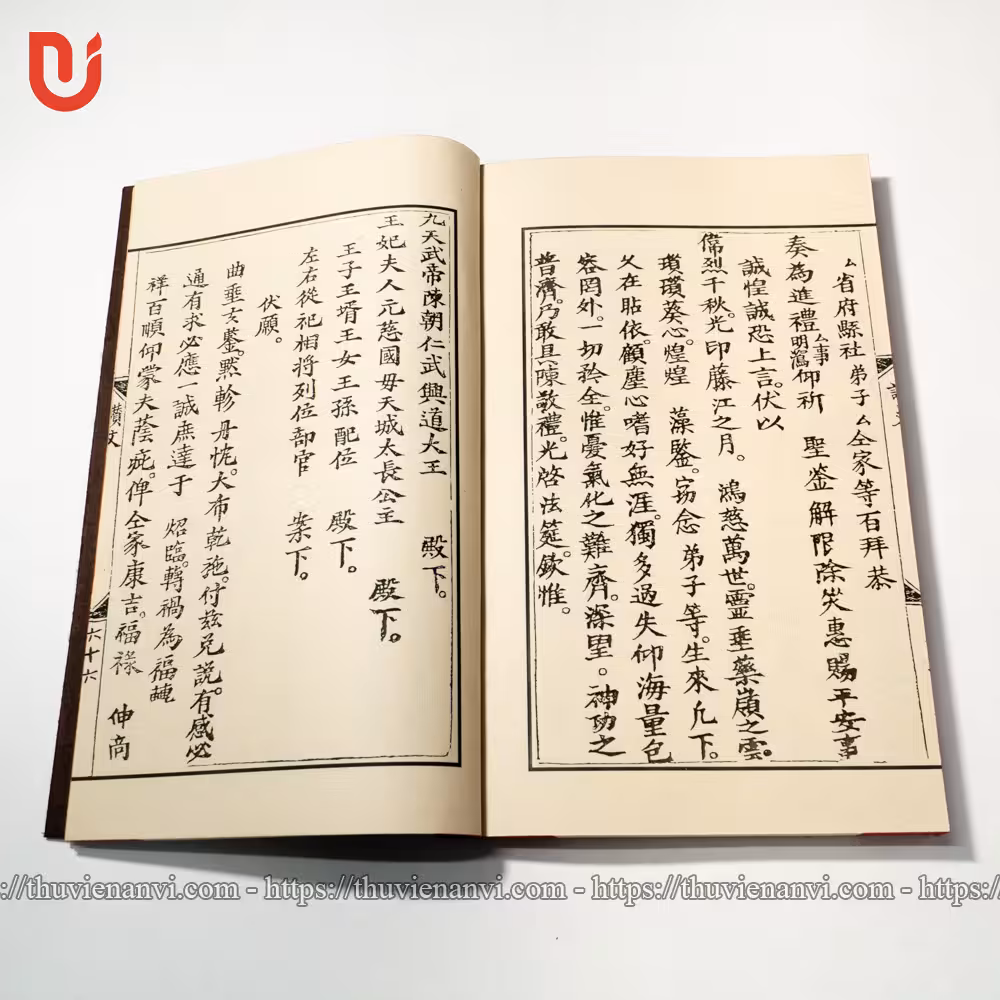 厶省府縣社弟子厶仝家等百拜恭
奏為進禮厶事明寫仰祈 聖鉴解限除灾惠賜平安事
誠惶誠恐上言。伏以
偉烈千秋。光印藤江之月。 鴻慈萬世。霊垂藥嶺之雲。
葵心。煌煌 藻鑒。窃念 弟子等。生來凢下。
久在貼依。顧塵心嗜好無涯。獨多過失仰海量包
容罔外。一切矜全。惟憂氣化之難齊。深望。神功之
普濟。乃敢具陳敬禮。光啓法筵。欽惟。
九天武帝陳朝仁武興道大王 殿下。
王妃夫人元慈國母天城太長公主 殿下。
王子王壻王女王孫配位 殿下。
左右從祀相將列位部官 案下。
伏願。
曲垂文鑒。黙軫丹忱。大布乾施。付兹兑説。有感必
通有求必應一誠庶達于 炤臨。轉禍為福
祥百順仰蒙夫蔭庇。俾仝家康吉。福禄 伸高
讚文
六十六
https://thuvienanvi.com - https://thuvienanvi.com - https://thuvienanvi.com - https://thuvienanvi.com